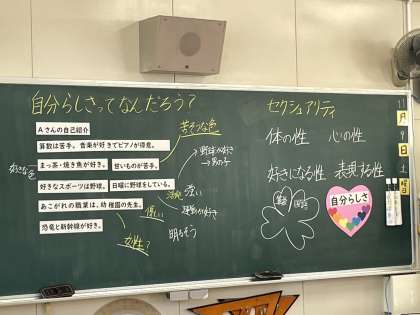 自分らしさってなんだろう？
Aさんの自己紹介
算数は苦手。音楽が好きでピアノが得意。
まっ茶・焼き魚が好き。
甘いものが苦手。
好きなスポーツは野球。
日曜に野球をしている。
あこがれの職業は、幼稚園の先生。
恐竜と新幹線が好き。
好きな色
野球が好き
→男の子
強い
運動が好き
明るそう
優しい
女性？
セクシュアリティ
体の性
心の性
好きになる性
表現する性
自分らしさ
月
9
日
土
曜